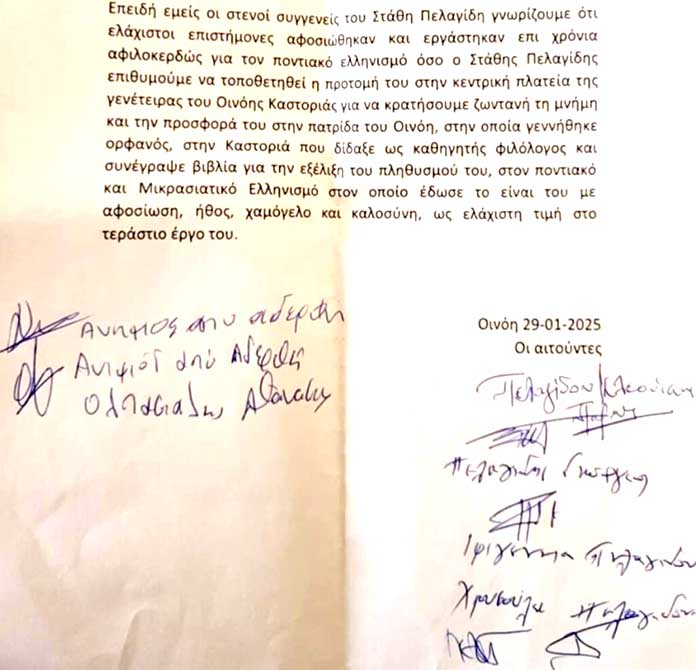 Επειδή εμείς οι στενοί συγγενείς του Στάθη Πελαγίδη γνωρίζουμε ότι
ελάχιστοι επιστήμονες αφοσιώθηκαν και εργάστηκαν επι χρόνια
αφιλοκερδώς για τον ποντιακό ελληνισμό όσο ο Στάθης Πελαγίδης
επιθυμούμε να τοποθετηθεί η προτομή του στην κεντρική πλατεία της
γενέτειρας του Οινόης Καστοριάς για να κρατήσουμε ζωντανή τη μνήμη
και την προσφορά του στην πατρίδα του Οινόη, στην οποία γεννήθηκε
ορφανός, στην Καστοριά που δίδαξε ως καθηγητής φιλόλογος και
συνέγραψε βιβλία για την εξέλιξη του πληθυσμού του, στον ποντιακό
και Μικρασιατικό Ελληνισμό στον οποίο έδωσε το είναι του με
αφοσίωση, ήθος, χαμόγελο και καλοσύνη, ως ελάχιστη τιμή στο
τεράστιο έργο του.
Οινόη 29-01-2025
Οι αιτούντες
Ανηψιος απο αδερφη
Ανηψιός από Αδερφη
Πελαγίδου
Πελαγίδης Γιώργος
Ιφιγένεια Πελαγίδου
Χρυσούλα Πελαγίδου